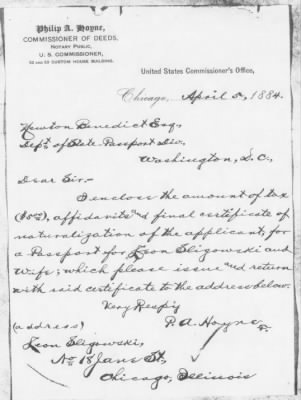 Philip A. Hoyne,
COMMISSIONER OF DEEDS,
NOTARY PUBLIC,
U. S. COMMISSIONER,
52 AND 53 CUSTOM HOUSE BUILDING.
United States Commissioner's Office,
Chicago, April 5, 1884.
Newton Benedict Esq,
Dept of State Passport Div,
Washington, D. C,
Dear Sir:-
I enclose the amount of tax
($5 00), affidavits and final certificate of
naturalization of the applicant, for
a Passport for Leon Sligowski and
Wife; which please issue and return
with said certificate to the address below.
Very Respy
(address) P. A. Hoyne
Leon Sligowski,
No 18 Jans St,
Chicago, Illinois